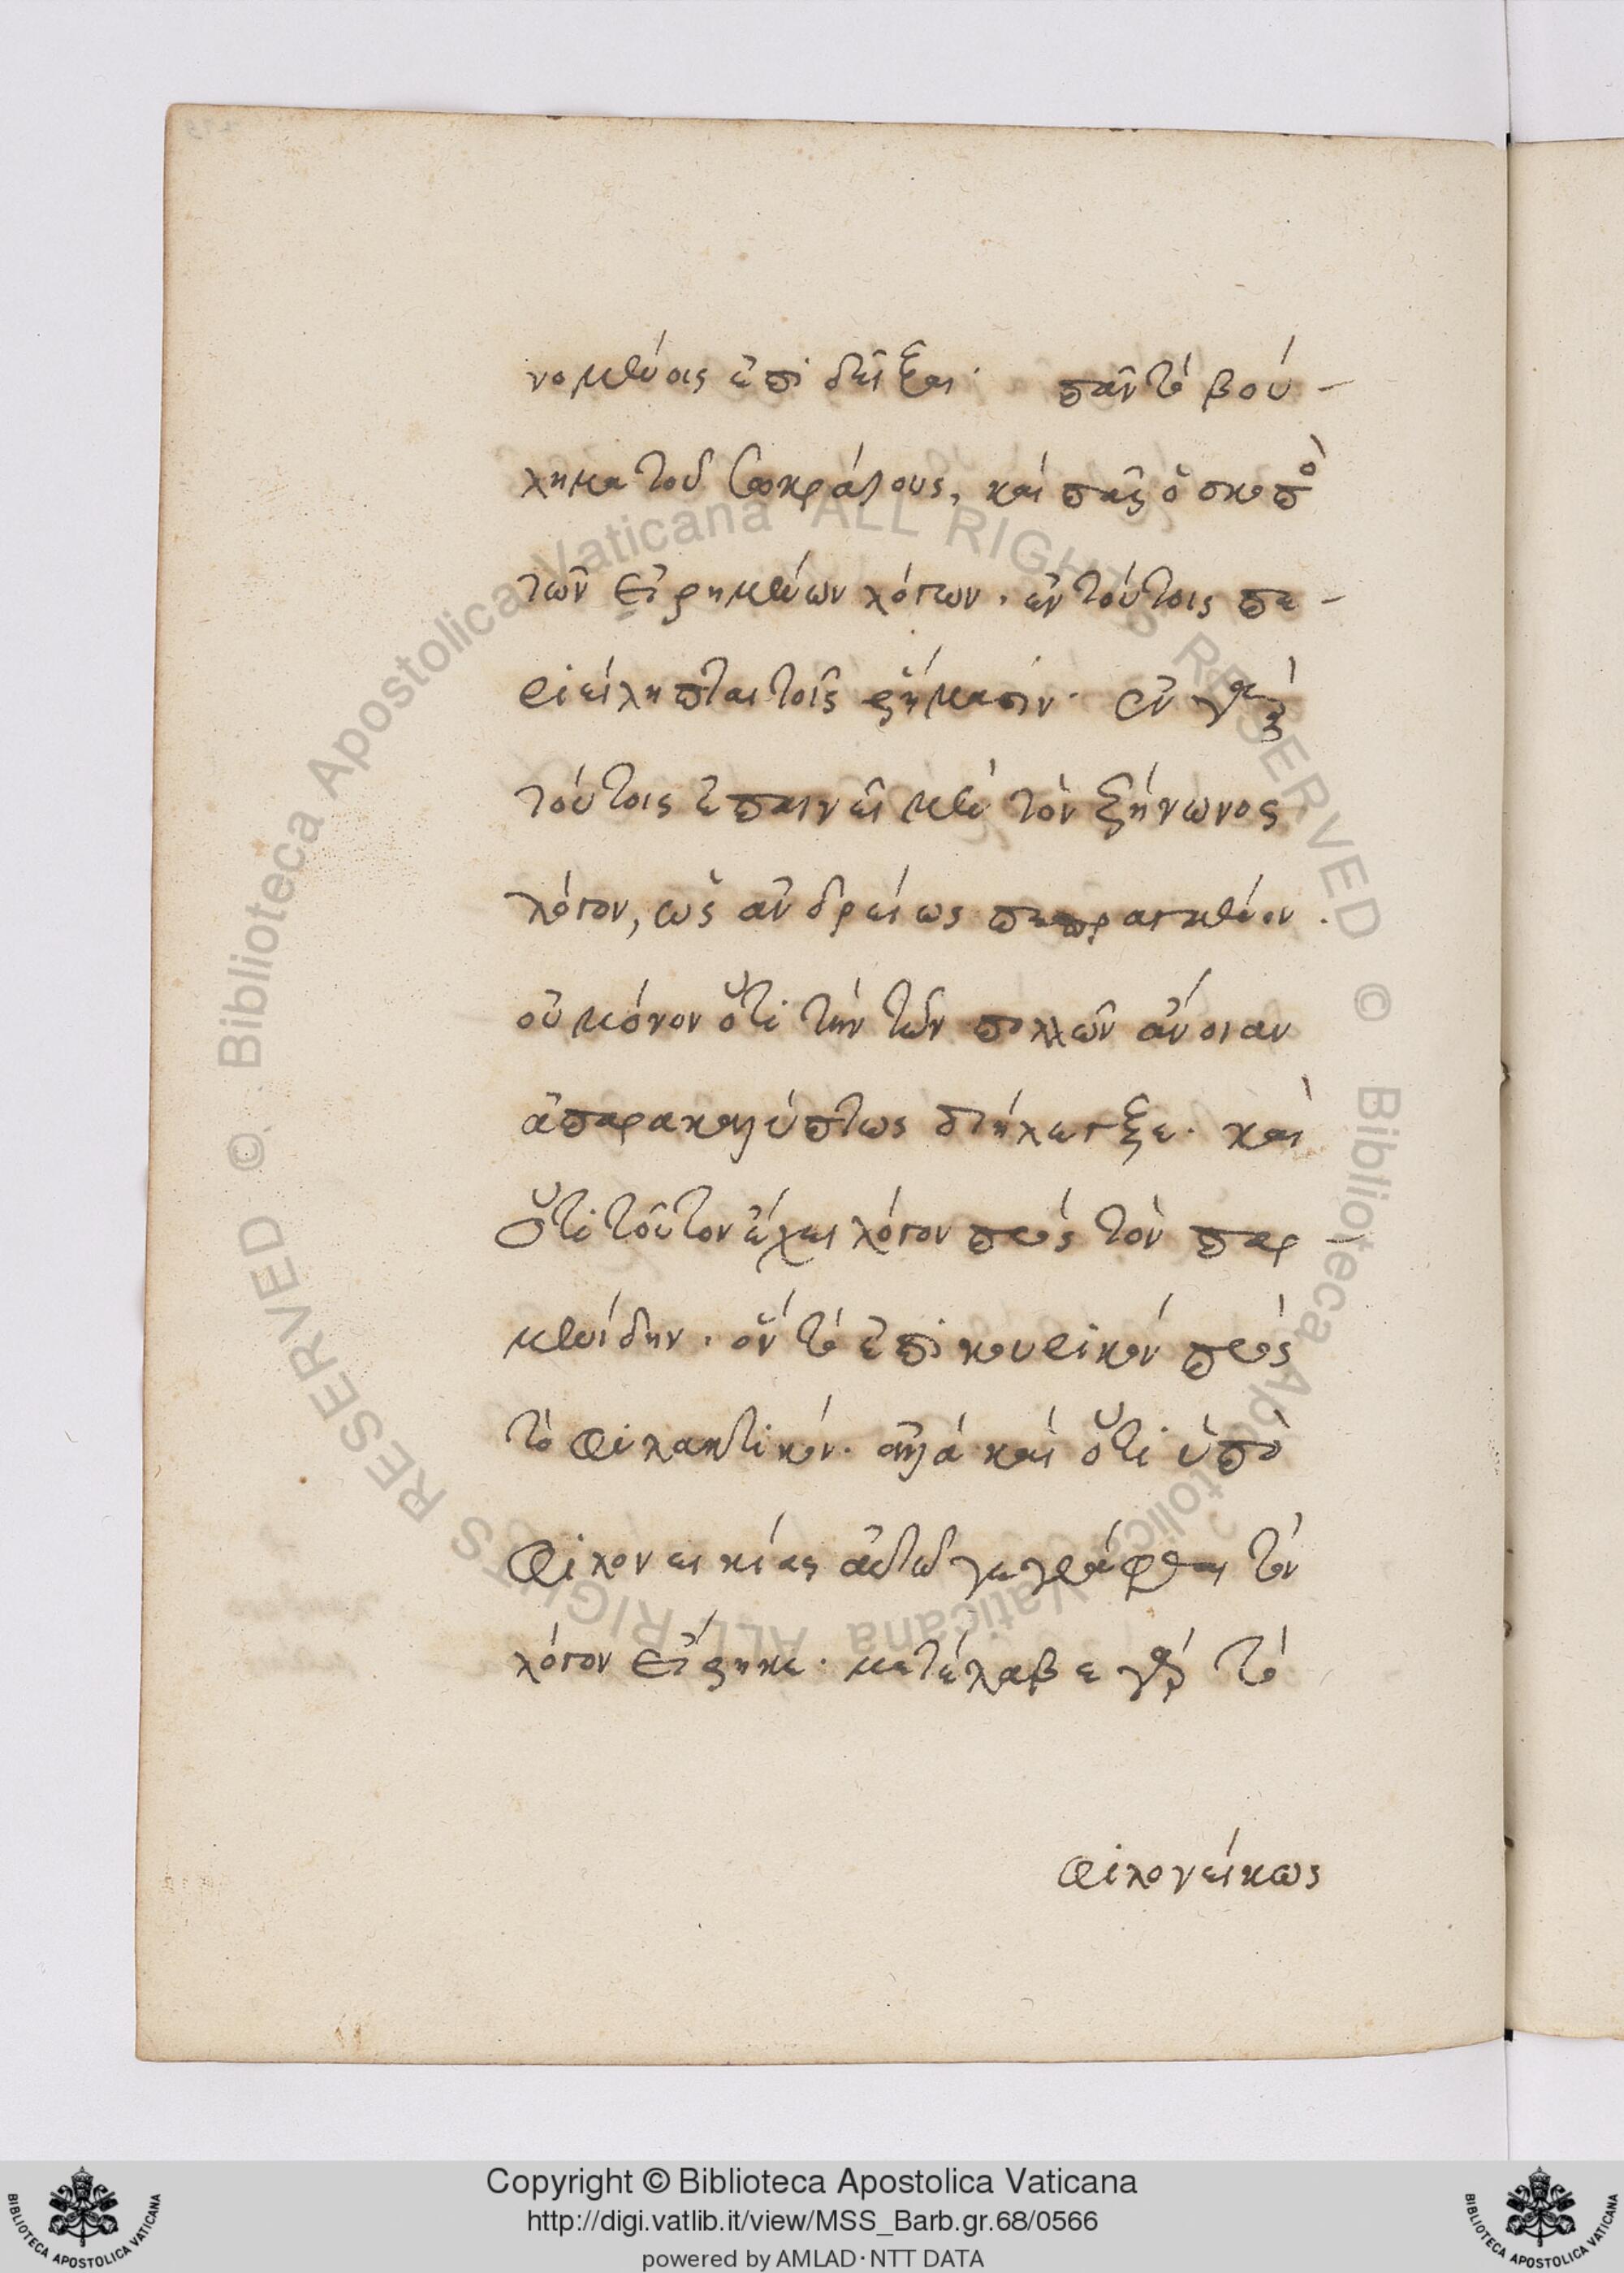 νομένοις ἐπιδεῖξαι· πᾶν τὸ βού-
λημα τοῦ Σωκράτους, καὶ πᾶς ὁ σκοπὸ
τῶν εἰρημένων λόγων. ἐν τούτοις πε-
ριείληπται τοῖς ῥήμασιν· ἐν γὰρ
τούτοις ἐπαινεῖ μὲν τὸν ζήνωνος
λόγον, ὡς ἀνδρείως πεπραγμένον.
οὐ μόνον ὅτι τὴν τῶν πολλῶν ἄνοιαν
ἀπαρακαλύπτως διήλεγξε. καὶ
ὅτι τοῦτον ἔχει λόγον πρὸς τὸν παρ-
μενίδην. ὃν τὸ ἐπικουρικὸν πρὸς
τὸ φυλακτικόν. ἀλλὰ καὶ ὅτι ὑπὸ
φιλονεικίας αὐτῷ γεγράφθαι τὸν
λόγον εἴρηκε. μετέλαβε γὰρ τὸ
φιλονείκως
© Biblioteca Apostolica Vaticana ALL RIGHTS RESERVED © Biblioteca Apostolica Vaticana ALL RIGHTS RESERVED
Copyright © Biblioteca Apostolica Vaticana
http://digi.vatlib.it/view/MSS_Barb.gr.68/0566
powered by AMLAD·NTT DATA
BIBLIOTECA APOSTOLICA VATICANA
BIBLIOTECA APOSTOLICA VATICANA